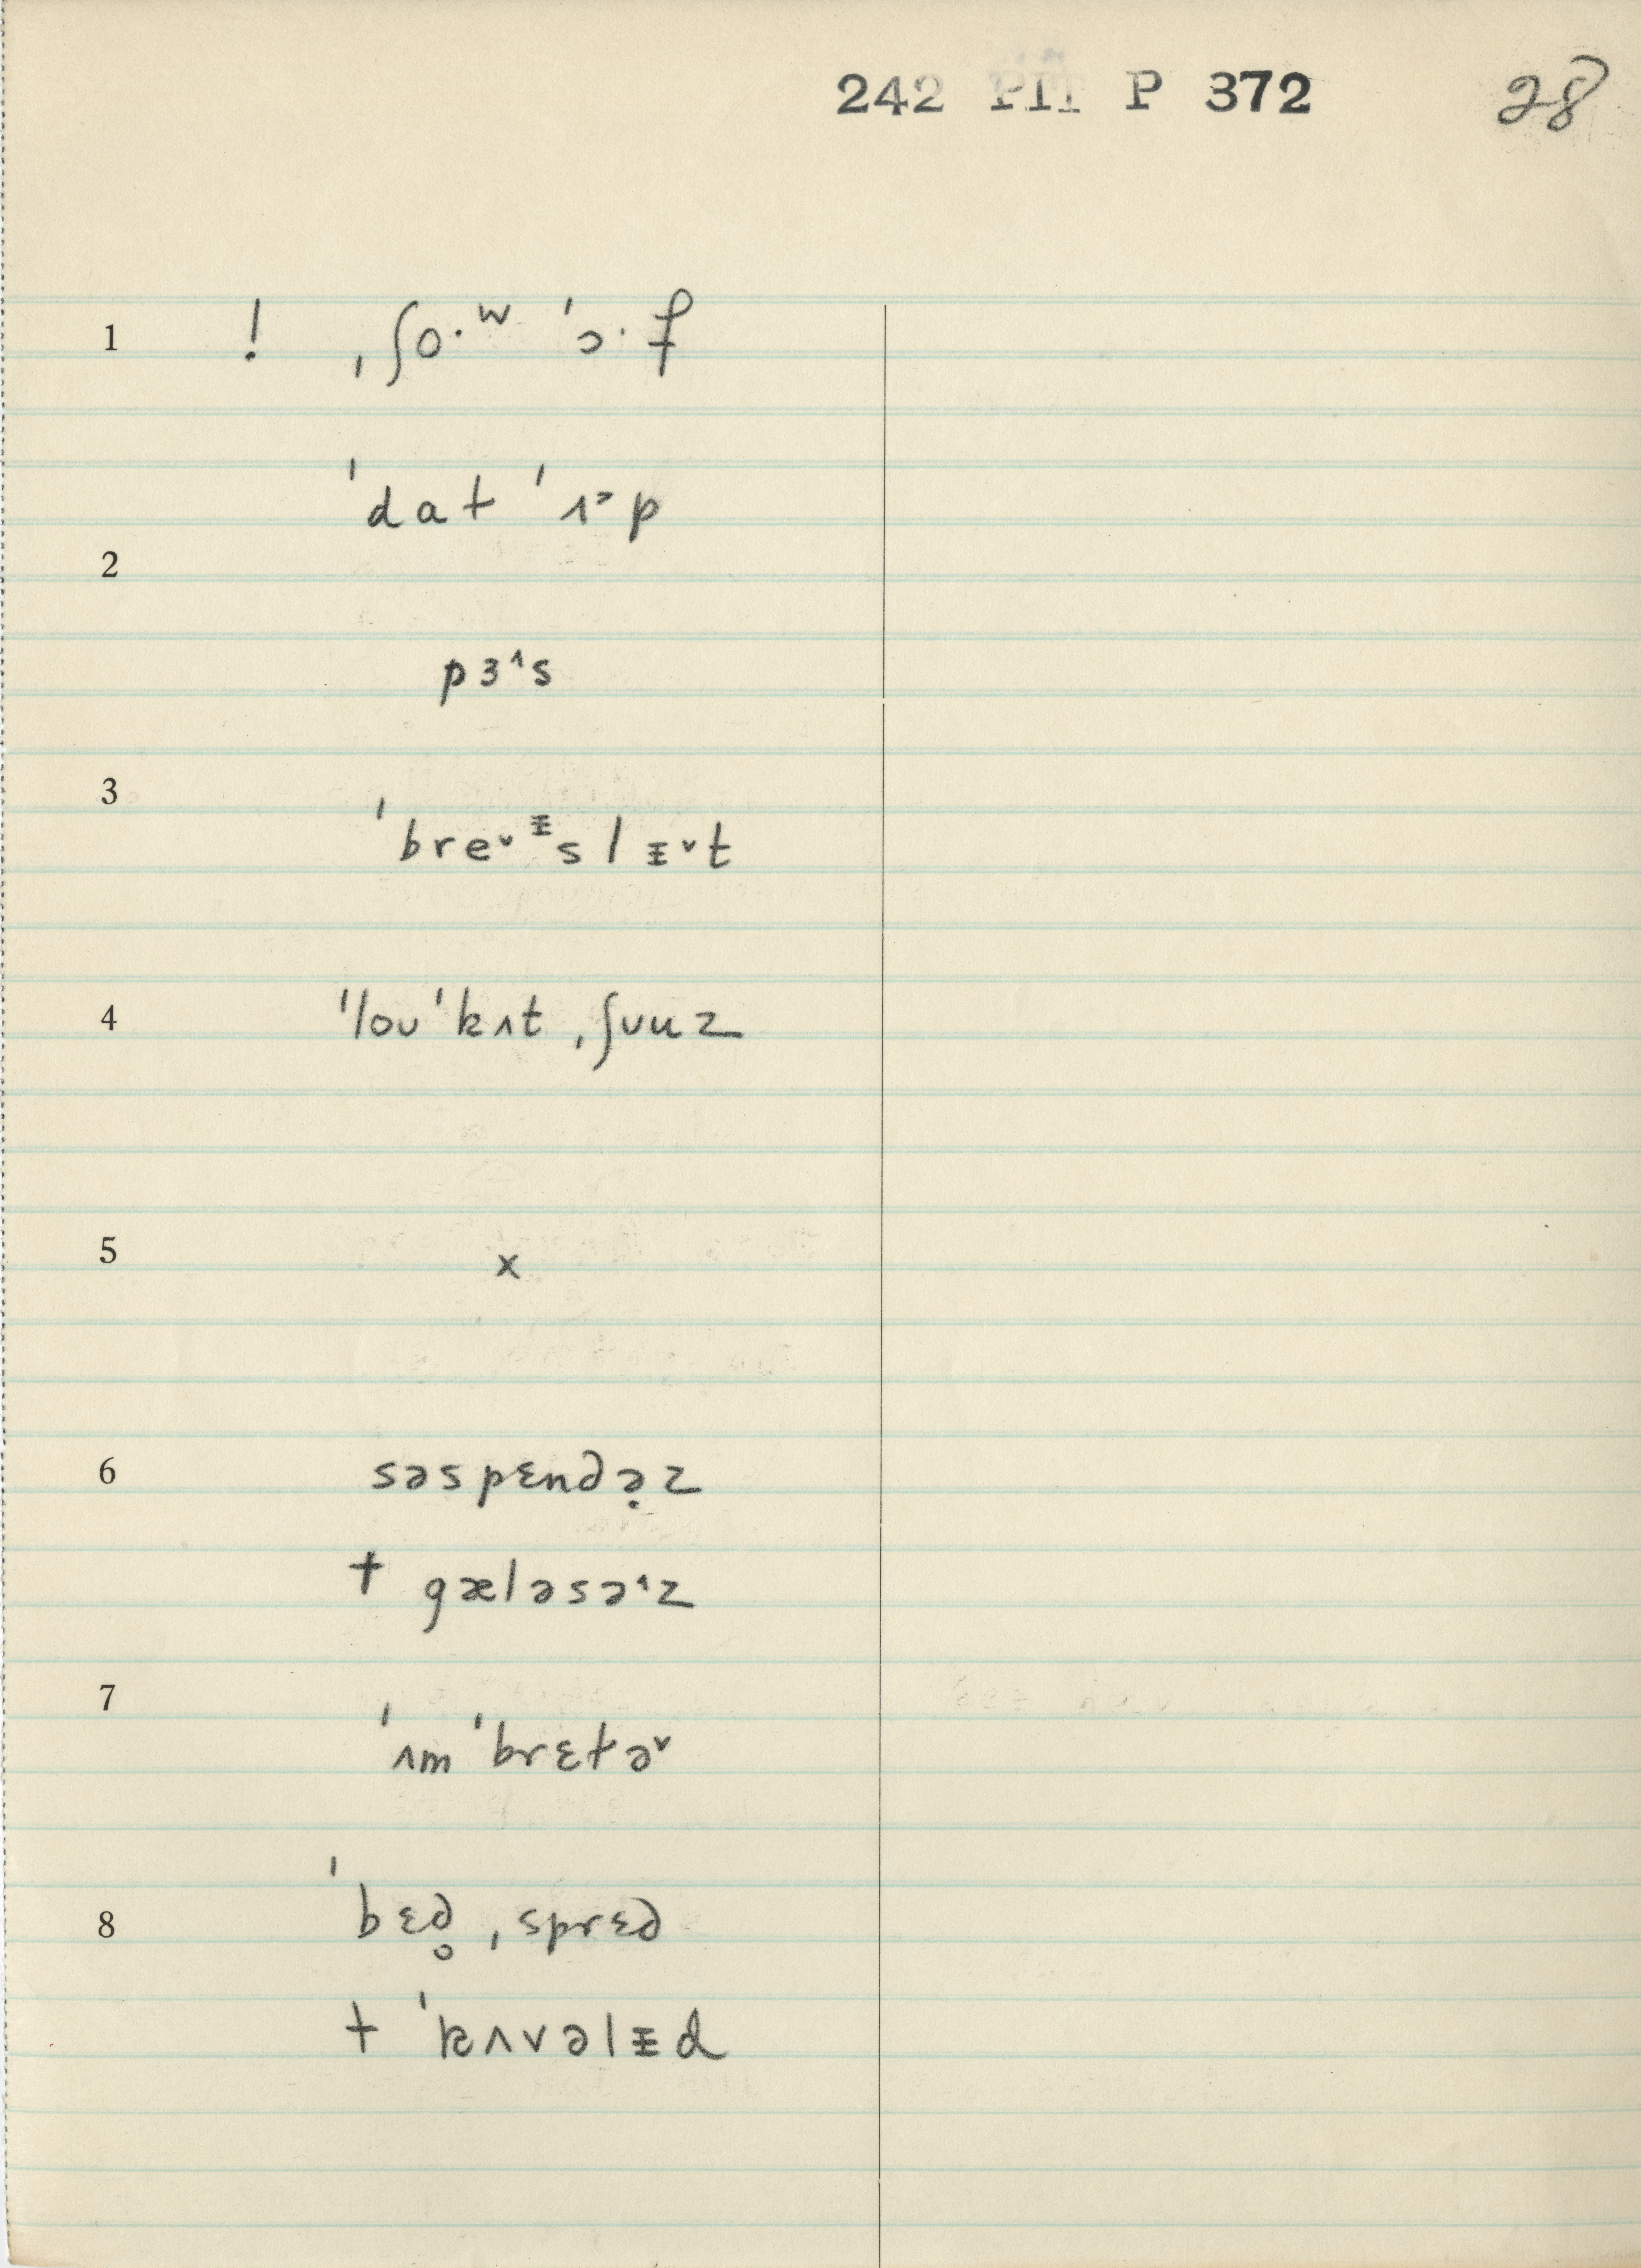 242 PIT P 372 28
1 ! ˌʃo·ʷ ˈɔ·f
ˈdat ˈɪ˃p
2
pɜ^s
3
ˈbre˅ᵻslᵻ˅t
4 ˈloʊ ˈkʌt ˌʃuuz
5 x
6 səspɛndə̣z
† gæləsə^z
7
ˈʌm ˈbrɛtə˅
8 ˈbɛd̥ ˌsprɛd
† ˈkʌvəlᵻd